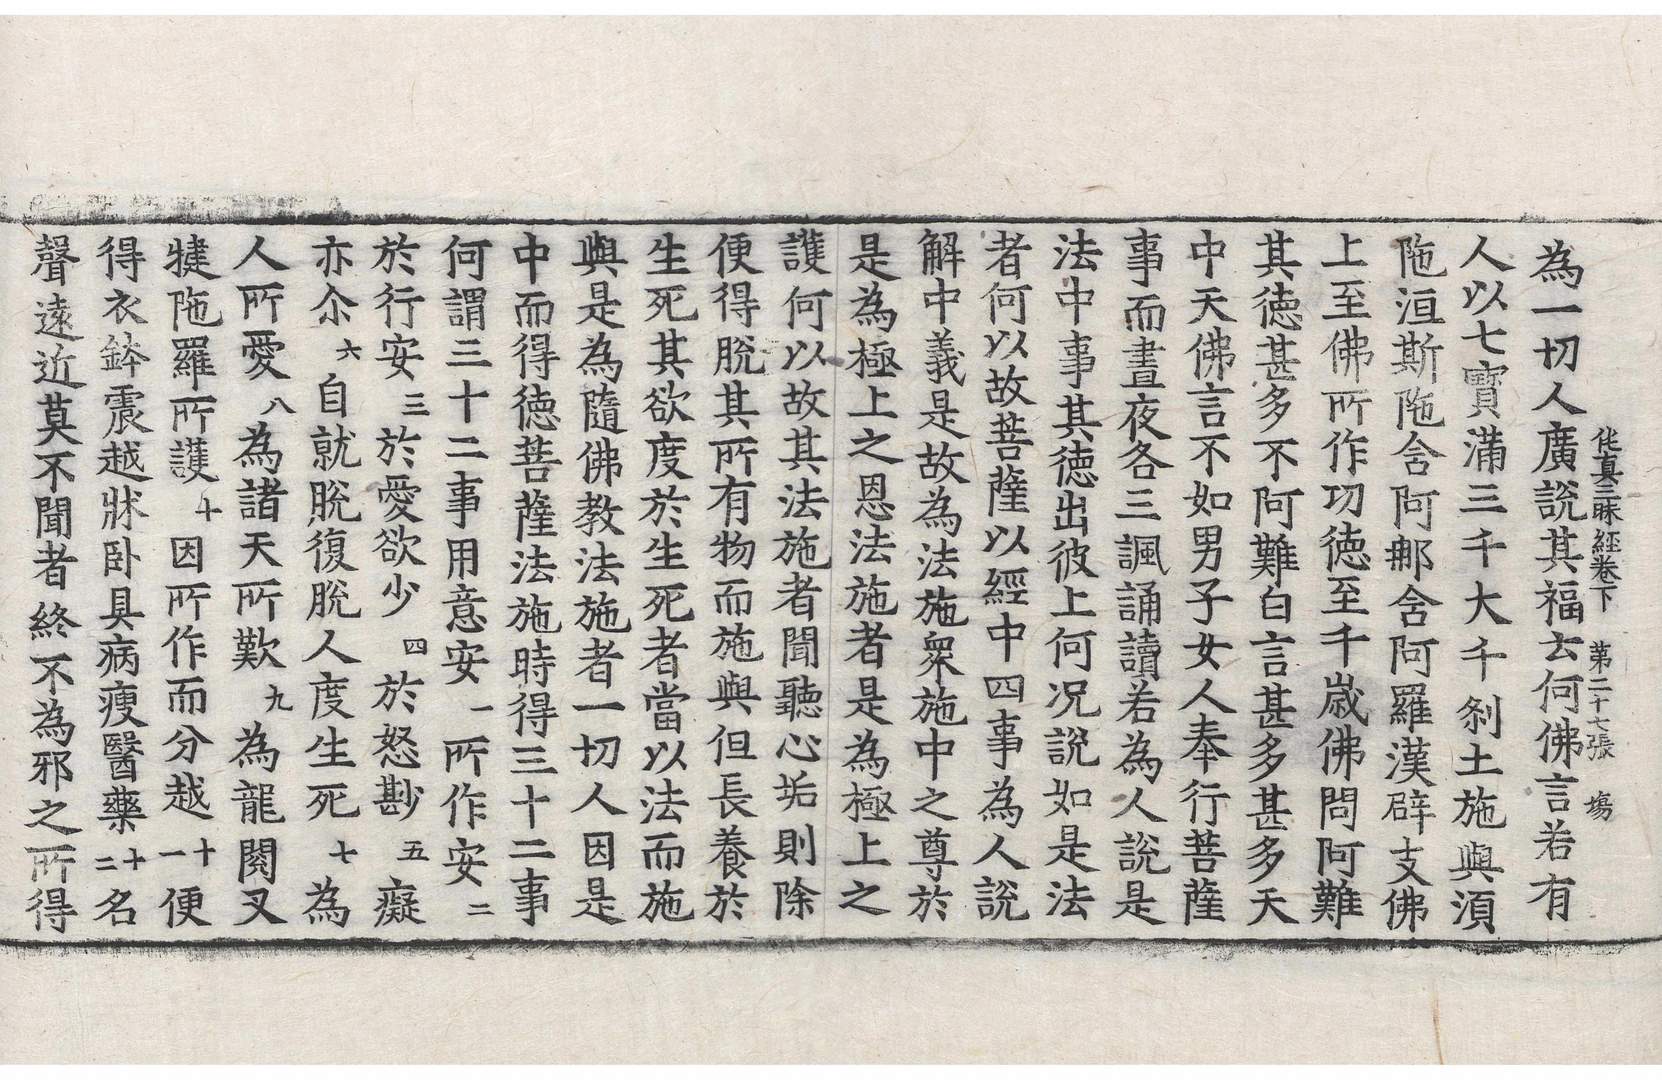 伅真三昧經卷下　第二十七張　塲
為一切人廣說其福云何佛言若有
人以七寶滿三千大千剎土施與須
陁洹斯陁含阿那含阿羅漢辟支佛
上至佛所作功德至千歲佛問阿難
其德甚多不阿難白言甚多甚多天
中天佛言不如男子女人奉行菩薩
事而晝夜各三諷誦讀若為人說是
法中事其德出彼上何况說如是法
者何以故菩薩以經中四事為人說
解中義是故為法施衆施中之尊於
是為極上之恩法施者是為極上之
護何以故其法施者聞聽心垢則除
便得脫其所有物而施與但長養於
生死其欲度於生死者當以法而施
與是為隨佛教法施者一切人因是
中而得德菩薩法施時得三十二事
何謂三十二事用意安一所作安二
於行安三於愛欲少四於怒尠五癡
亦尒六自就脫復脫人度生死七為
人所愛八為諸天所歎九為龍閱叉
揵陁羅所護十因所作而分越十一便
得衣鉢震越牀卧具病瘦醫藥十二名
聲遠近莫不聞者終不為邪之所得